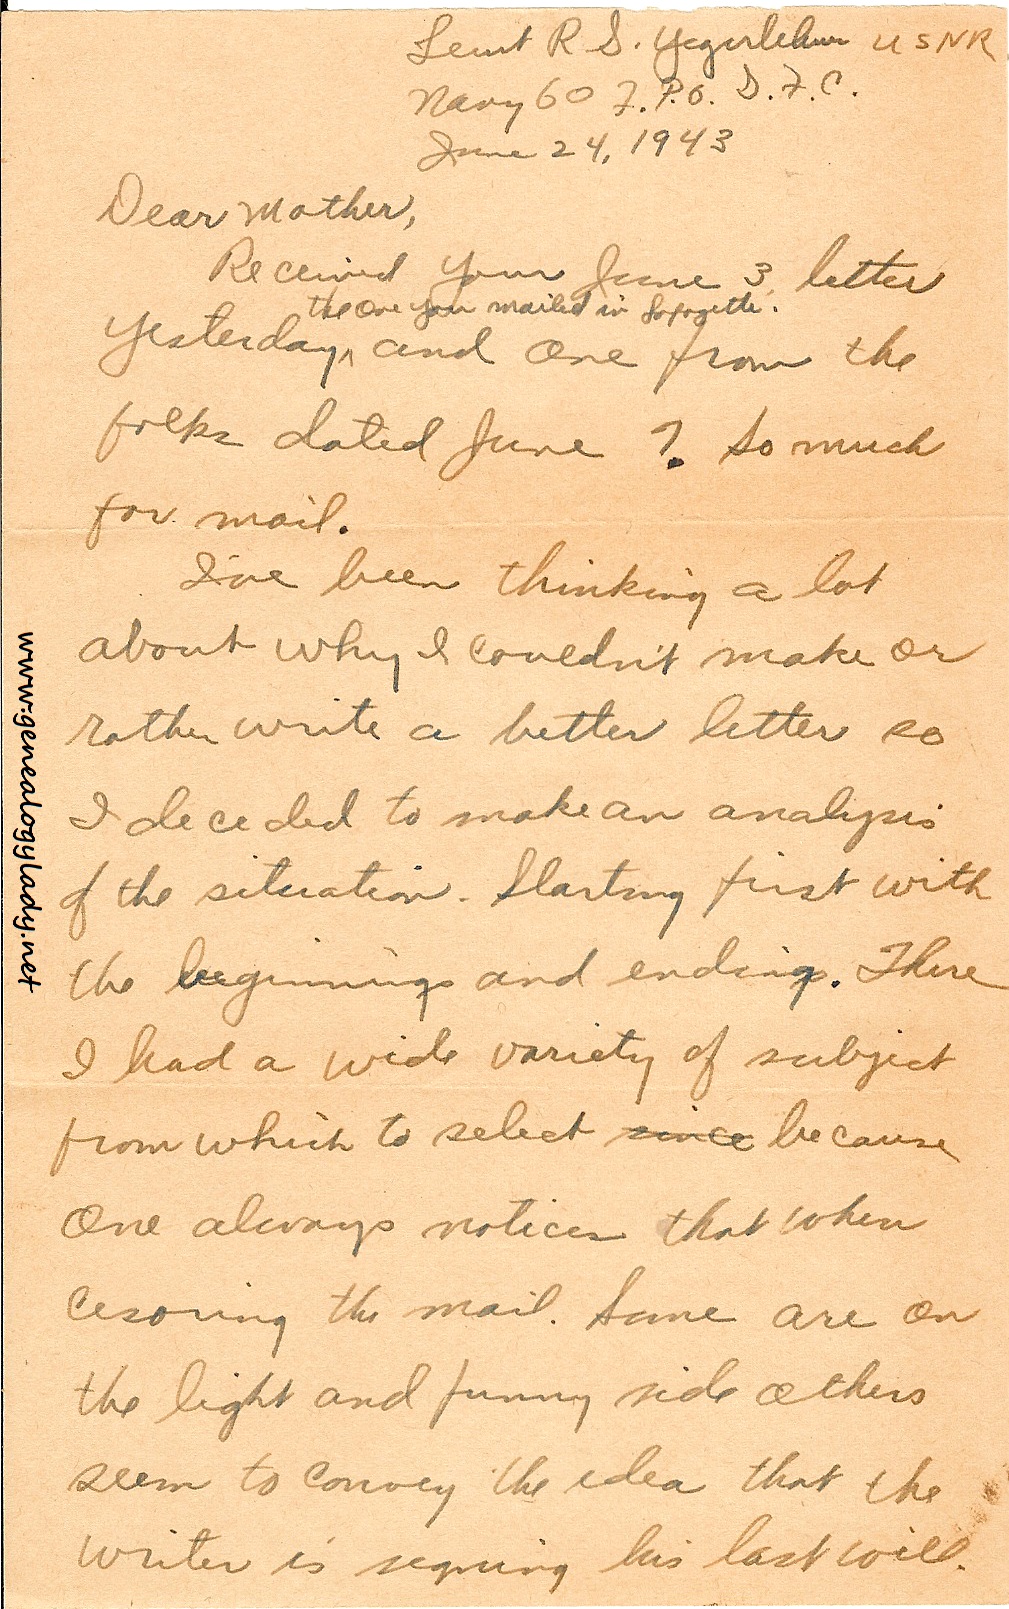 Leiut R S. Yegerlehner USNR
Navy 60 F.P.O. S.F.C.
June 24, 1943
Dear Mother,
Received your June 3, letter
the one you mailed in Lafayette.
yesterday, and one from the
folks dated June ?. So much
for mail.
I've been thinking a lot
about why I couldn't make or
rather write a better letter so
I deceded to make an analysis
of the situation. Starting first with
the beginnings and endings. There
I had a wide variety of subject
from which to select since because
one always notices that when
cesoring the mail. Some are on
the light and funny side others
seem to convey the idea that the
writer is signing his last will.
www.genealogylady.net